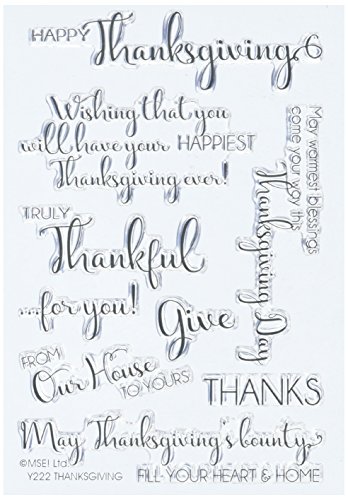 HAPPY Thanksgiving
Wishing that you
will have your HAPPIEST
Thanksgiving ever!
May warmest blessings
come your way this
Thanksgiving Day
TRULY
Thankful
...for you!
Give
FROM
Our House
TO YOURS
THANKS
May Thanksgiving's bounty
FILL YOUR HEART & HOME
©MSE! Ltd.
Y222 THANKSGIVING